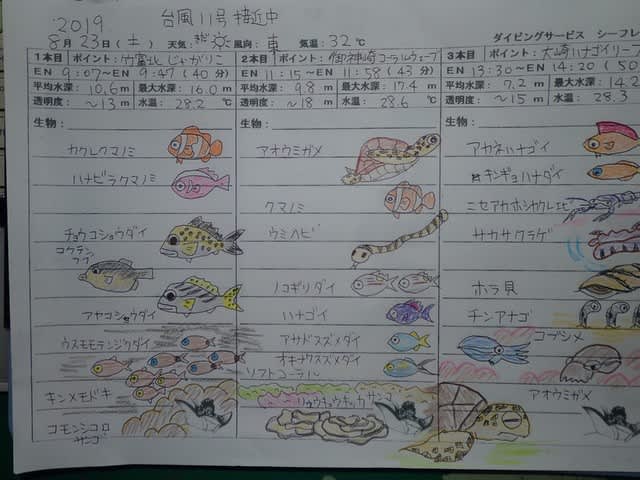 2019
台風11号接近中
8月23日(土) 天気: 風向: 東 気温: 32℃
ダイビングサービス シーフレ
1本目 ポイント: 竹富北 じゃがりこ
EN 9:07～EN 9:47 (40分)
平均水深: 10.6m 最大水深: 16.0m
透明度: ～13m 水温: 28.2 ℃
生物:
カクレクマノミ
ハナビラクマノミ
チョウコショウダイ
コクテンフグ
アヤコショウダイ
ウスモモテンジクダイ
キンメモドキ
コモンシコロサンゴ
2本目 ポイント: 御神崎コーラルウェーブ
EN 11:15～EN 11:58 (43分)
平均水深: 9.8m 最大水深: 17.4m
透明度: ～18m 水温: 28.6 ℃
生物:
アオウミガメ
クマノミ
ウミヘビ
ノコギリダイ
ハナゴイ
アサドスズメダイ
オキナワスズメダイ
ソフトコーラル
リュウキュウキッカサンゴ
3本目 ポイント: 大崎ハナゴイリーフ
EN 13:30～EN 14:20 (50
平均水深: 7.2m 最大水深: 14.
透明度: ～15m 水温: 28.3
生物:
アカネハナゴイ
キンギョハナダイ
ニセアカホシカクレエビ
サカサクラゲ
ホラ貝
チンアナゴ
コブシメ
アオウミガメ